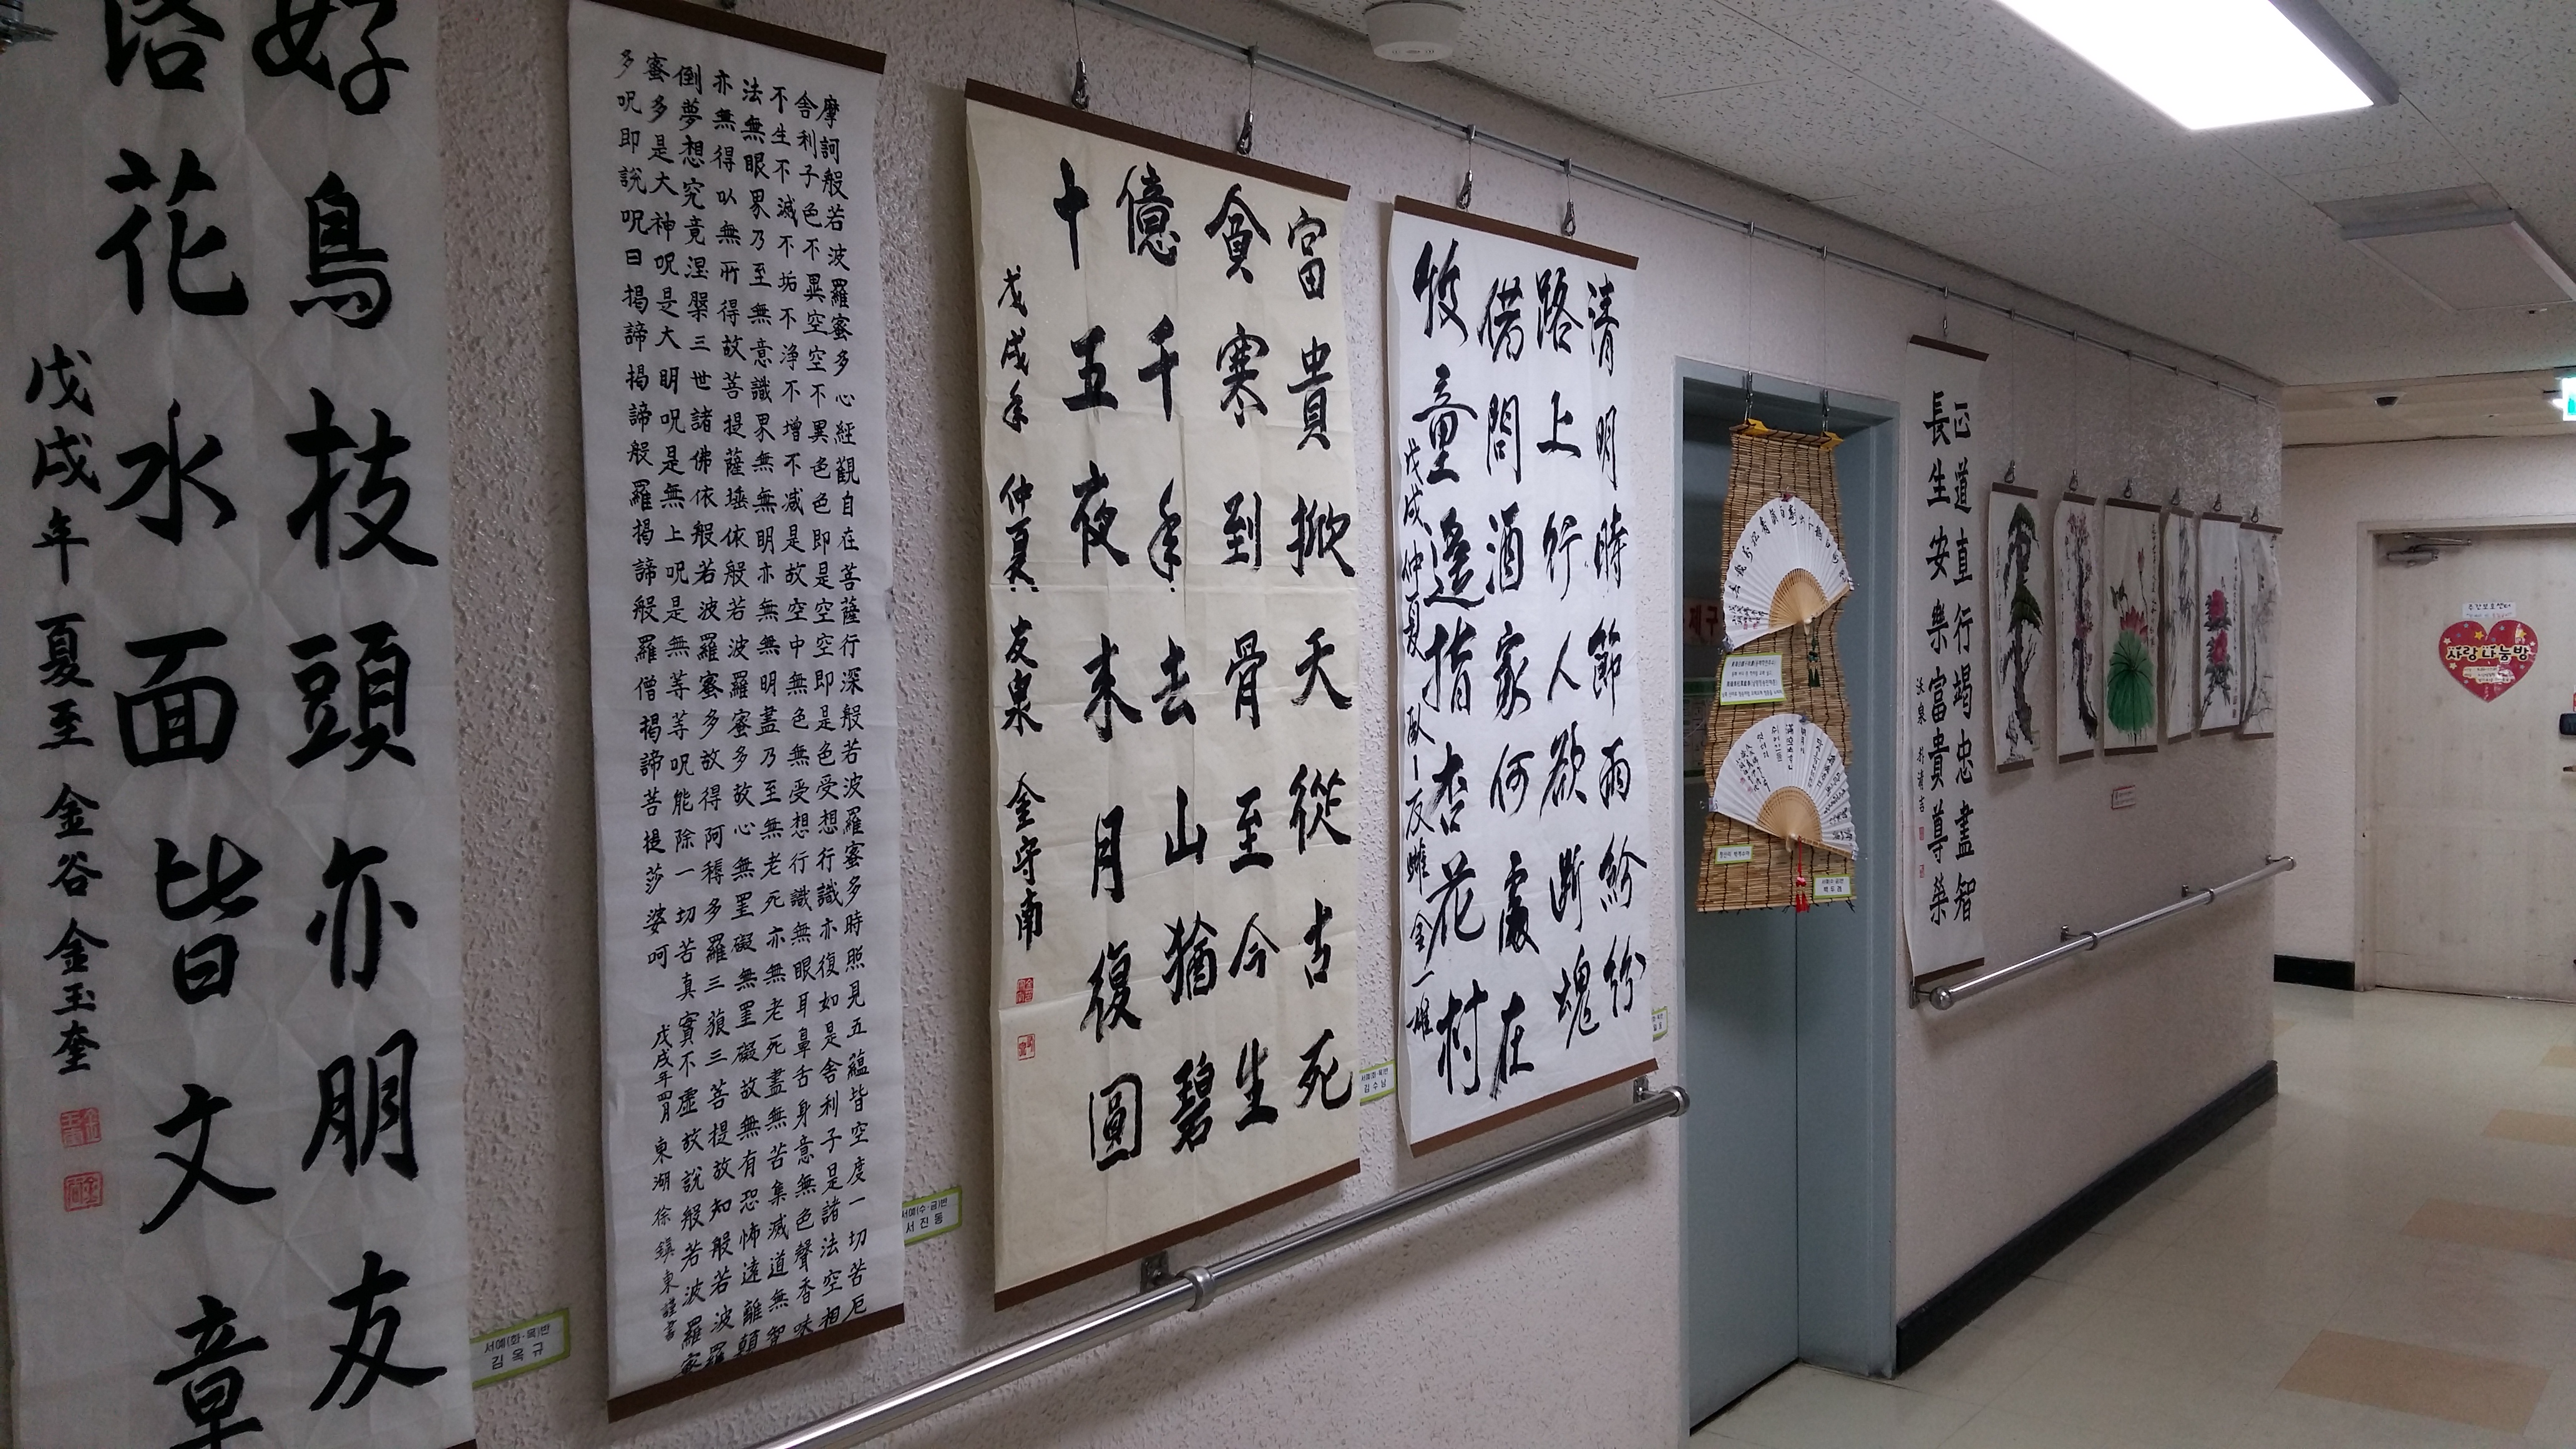 好鳥技頭亦朋友
落花水面皆文章
戊戌年 夏至 金谷 金玉奎
서예(화·목)반
김옥규
摩訶般若波羅蜜多心經觀自在菩薩行深般若波羅蜜多時照見五蘊皆空度一切苦厄
舍利子色不異空空不異色色即是空空即是色受想行識亦復如是舍利子是諸法空相
不生不滅不垢不淨不增不減是故空中無色無受想行識無眼耳鼻舌身意無色聲香味
法無眼界乃至無意識界無無明亦無無明盡乃至無老死亦無老死盡無苦集滅道無智
亦無得以無所得故菩提薩埵依般若波羅蜜多故心無罣礙無罣礙故無有恐怖遠離顛
倒夢想究竟涅槃三世諸佛依般若波羅蜜多故得阿耨多羅三藐三菩提故知般若波羅
蜜多是大神呪是大明呪是無上呪是無等等呪能除一切苦真實不虛故說般若波羅蜜
多呪即說呪曰揭諦揭諦般羅揭諦般羅僧揭諦菩提莎婆呵
戊戌年四月 東湖 徐鎭東謹書
서예(수·금)반
서진동
富貴掀天從古死
貪寒到骨至今生
億千年去山猶碧
十五夜来月復圓
戊戌年 仲夏 友泉 金守南
서예(화·목)반
김수남
清明時節雨紛紛
路上行人欲斷魂
借問酒家何處在
牧童遙指杏花村
戊戌仲夏
金一雄
正道直行竭忠盡智
長生安樂富貴尊榮
사랑나눔방